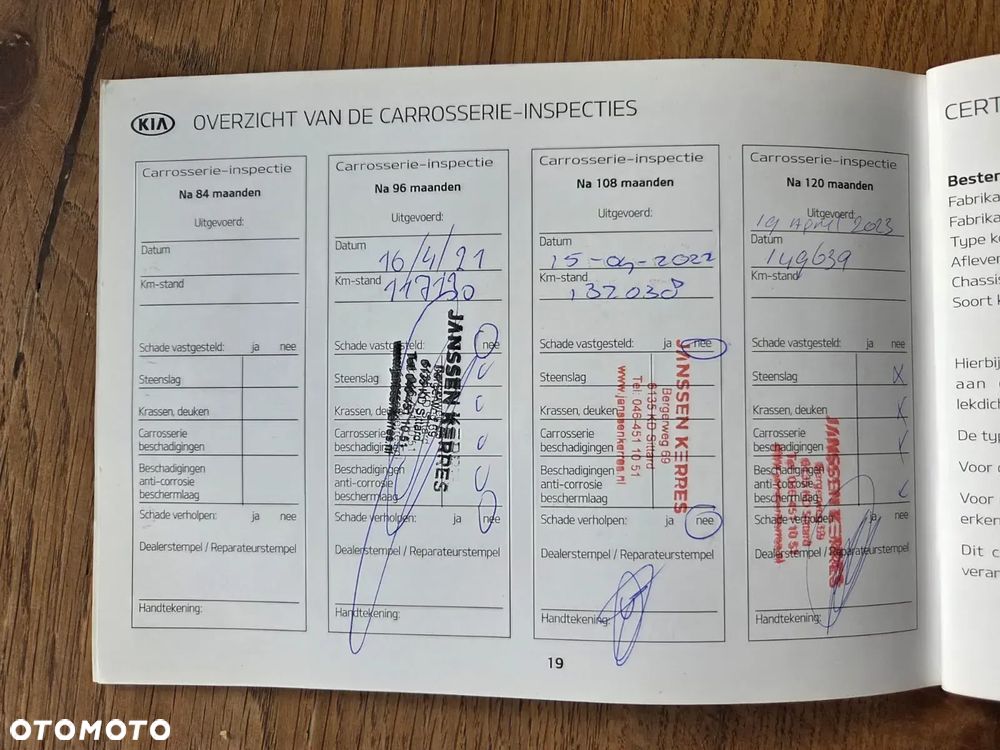 KIA OVERZICHT VAN DE CARROSSERIE-INSPECTIES
Carrosserie-inspectie
Na 84 maanden
Uitgevoerd:
Datum
Km-stand
Schade vastgesteld: ja nee
Steenslag
Krassen, deuken
Carrosserie
beschadigingen
Beschadigingen
anti-corrosie
beschermlaag
Schade verholpen: ja nee
Dealerstempel / Reparateurstempel
Handtekening:
Carrosserie-inspectie
Na 96 maanden
Uitgevoerd:
Datum 16/4/21
Km-stand 117130
Schade vastgesteld: nee
Steenslag
Krassen, deuken
Carrosserie
beschadigingen
Beschadigingen
anti-corrosie
beschermlaag
Schade verholpen: ja nee
Dealerstempel / Reparateurstempel
Handtekening:
JANSSEN KERRES
6135 KD Sittard
Carrosserie-inspectie
Na 108 maanden
Uitgevoerd:
Datum
15-04-2022
Km-stand
132038
Schade vastgesteld: ja nee
Steenslag
Krassen, deuken
Carrosserie
beschadigingen
Beschadigingen
anti-corrosie
beschermlaag
Schade verholpen: ja nee
Dealerstempel / Reparateurstempel
Handtekening:
JANSSEN KERRES
Bergerweg 69
6135 KD Sittard
Tel: 046-451 10 51
www.janssenkerres.nl
Carrosserie-inspectie
Na 120 maanden
Uitgevoerd:
19 April 2023
Datum
149639
Km-stand
Schade vastgesteld: ja nee
Steenslag X
Krassen, deuken
Carrosserie
beschadigingen
Beschadigingen
anti-corrosie
beschermlaag
Schade verholpen ja nee
Dealerstempel / Reparateurstempel
Handtekening:
JANSSEN KERRES
19
CERT
Bester
Fabrika
Fabrika
Type k
Aflever
Chassis
Soort k
Hierbij
aan
lekdich
De typ
Voor
Voor
erken
Dit
veran
OTOMOTO